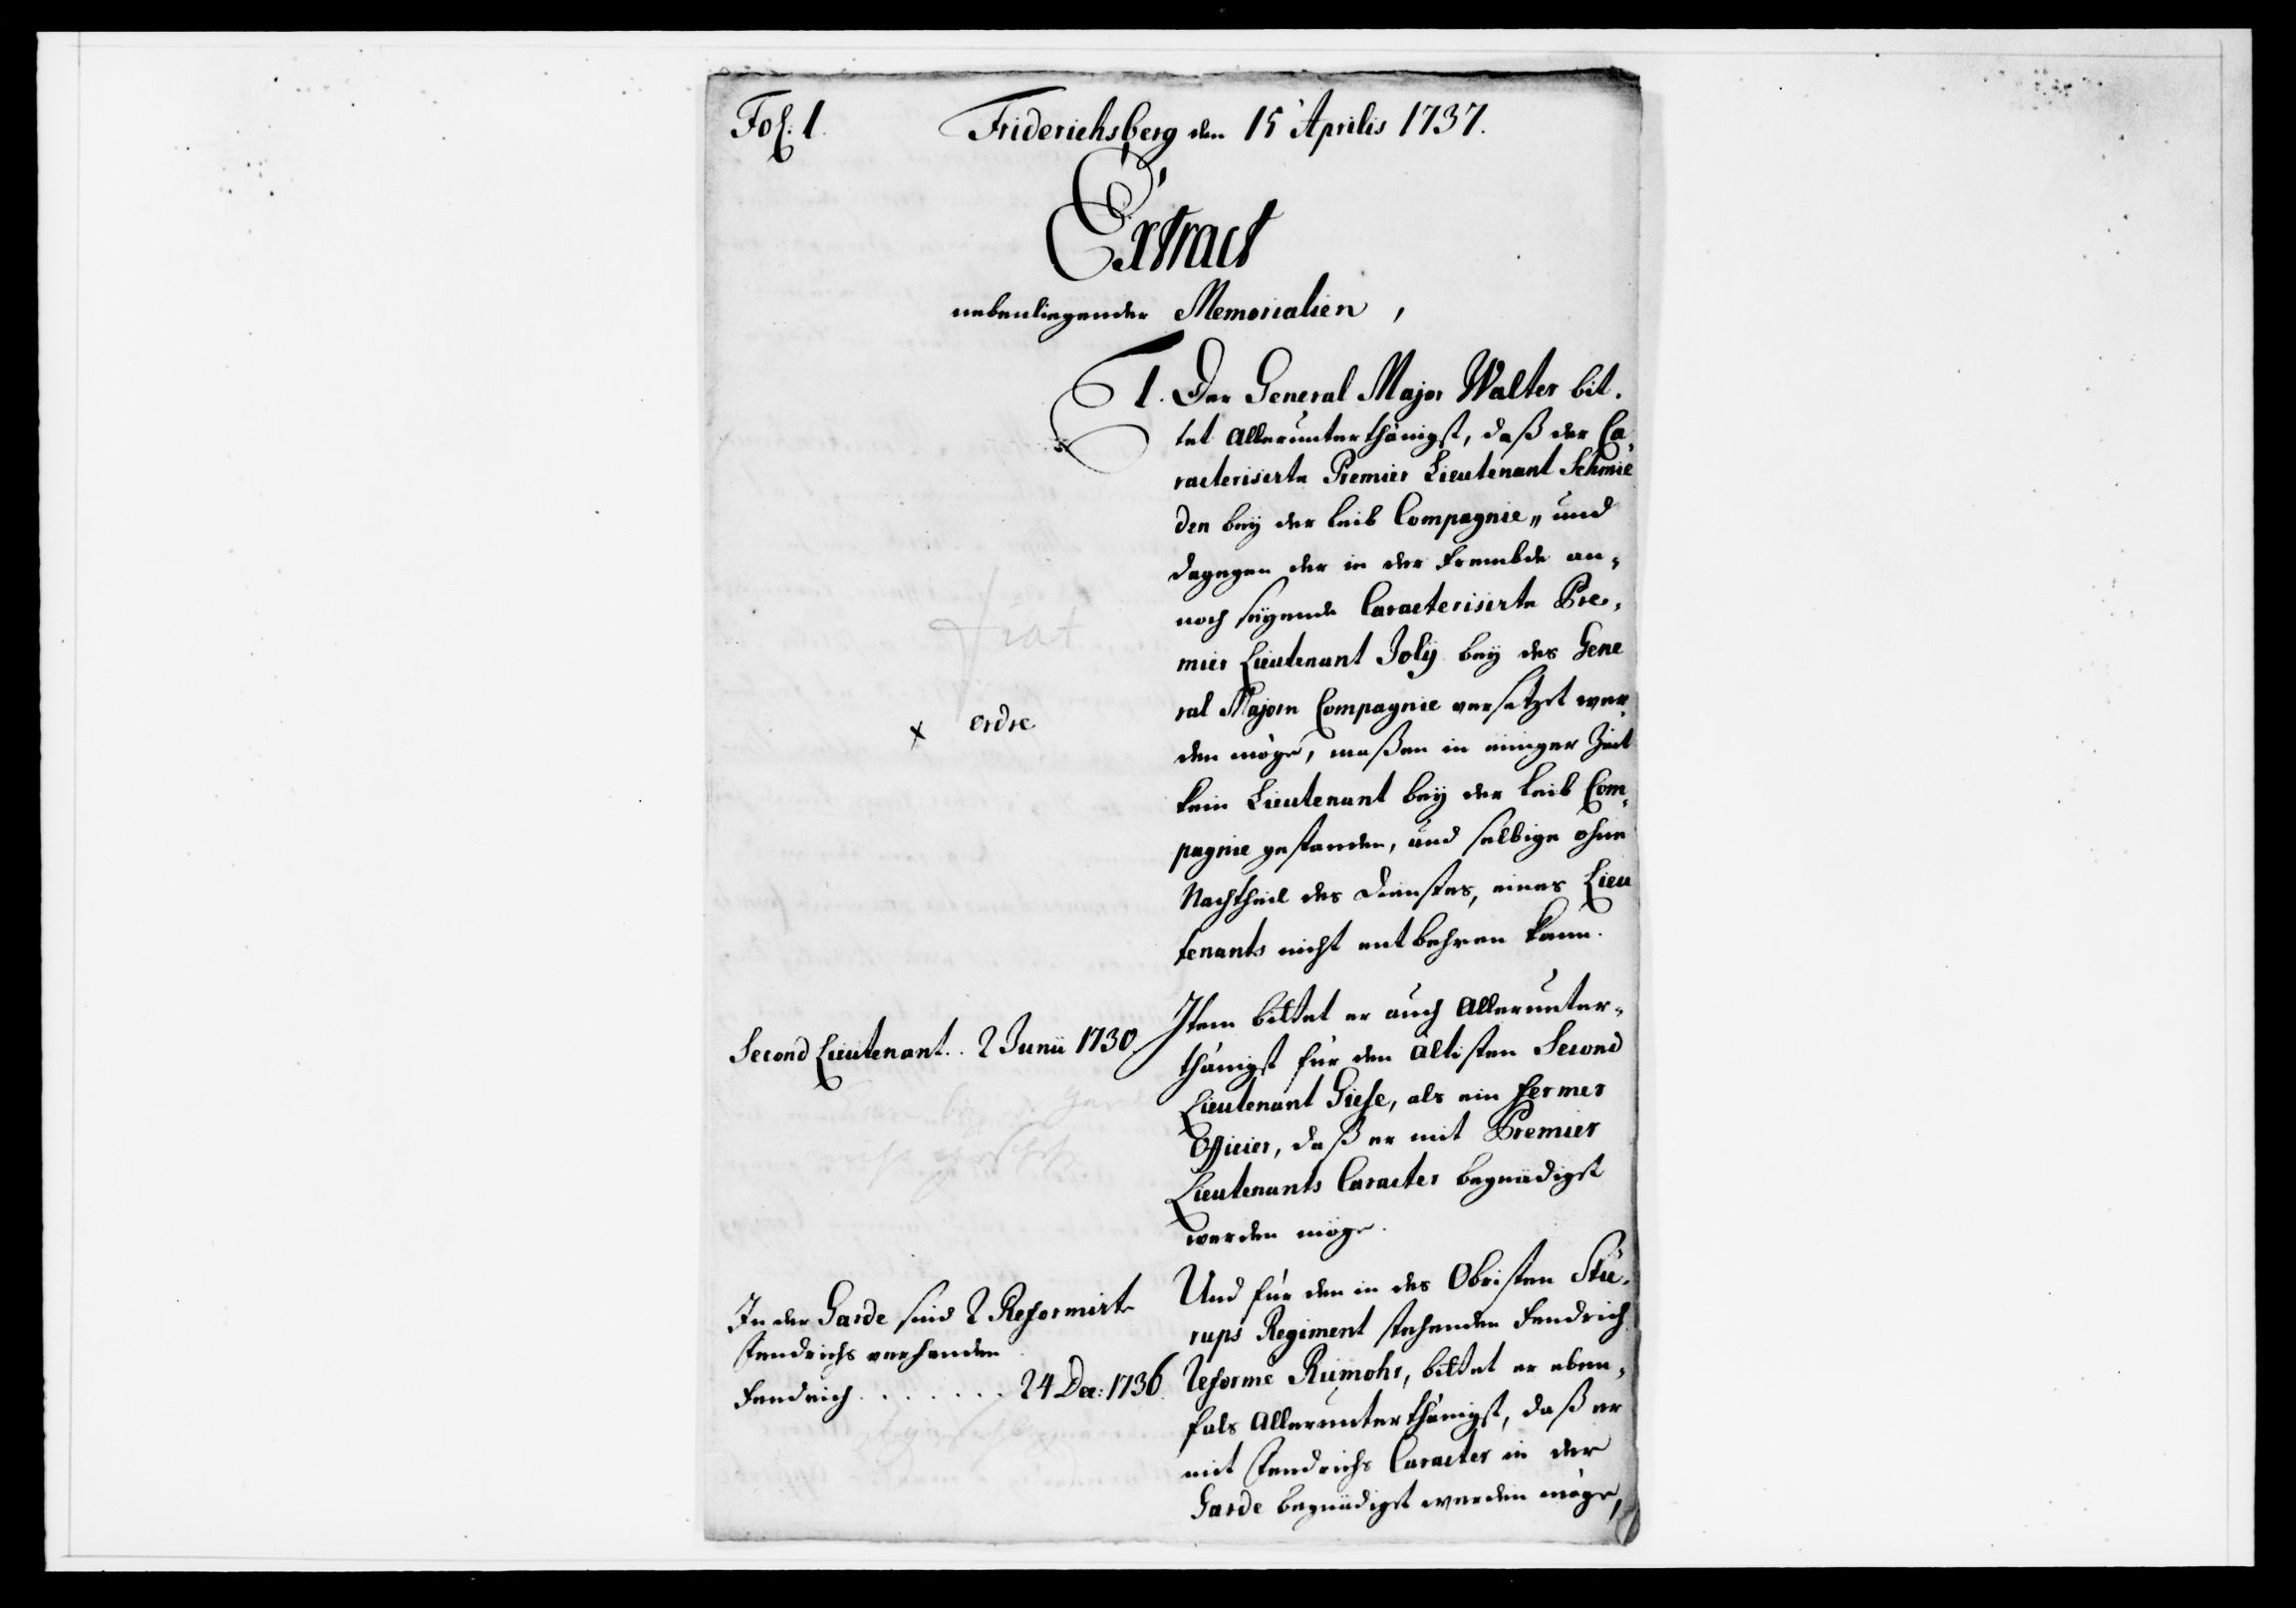 Fol: 1.
Friderichsberg den 15' Aprilis 1737.
Extract
nebenliegender Memorialien,
1. Der General Major Walter bit,
tet allerunterthänigst, daß der Ca,
racterisirte Premier Lieutenant Schmie
den bey der Leib Compagnie, und
dagegen der in der Frembde an,
noch seyende Caracterisirte Pre,
mier Lieutenant Joly bey des Gene
ral Majorn Compagnie versetzet wer,
den möge, maßen in einiger Zeit
kein Lieutenant bey der Leib Com,
pagnie gestanden, und selbige ohne
Nachtheil des Dienstes, eines Lieu
tenants nicht entbehren kann.
fiat
x ordre
Item bittet er auch allerunter,
thänigst für den ältisten Second
Lieutenant Giese, als ein fermer
Officier, daß er mit Premier
Lieutenants Caracter begnädigt
werden möge.
Second Lieutenant.. 2 Junii 1730.
Und für den in des Obristen Stü,
rups Regiment stehenden Fendrich
Reformé Rumohr, bittet er eben,
fals allerunterthänigst, daß er
mit Fendrichs Caracter in der
Garde begnädigt werden möge,
In der Garde sind 2 Reformirte
Fendrichs verhanden
Fendrich . . . . . . . 24 Dec: 1736.